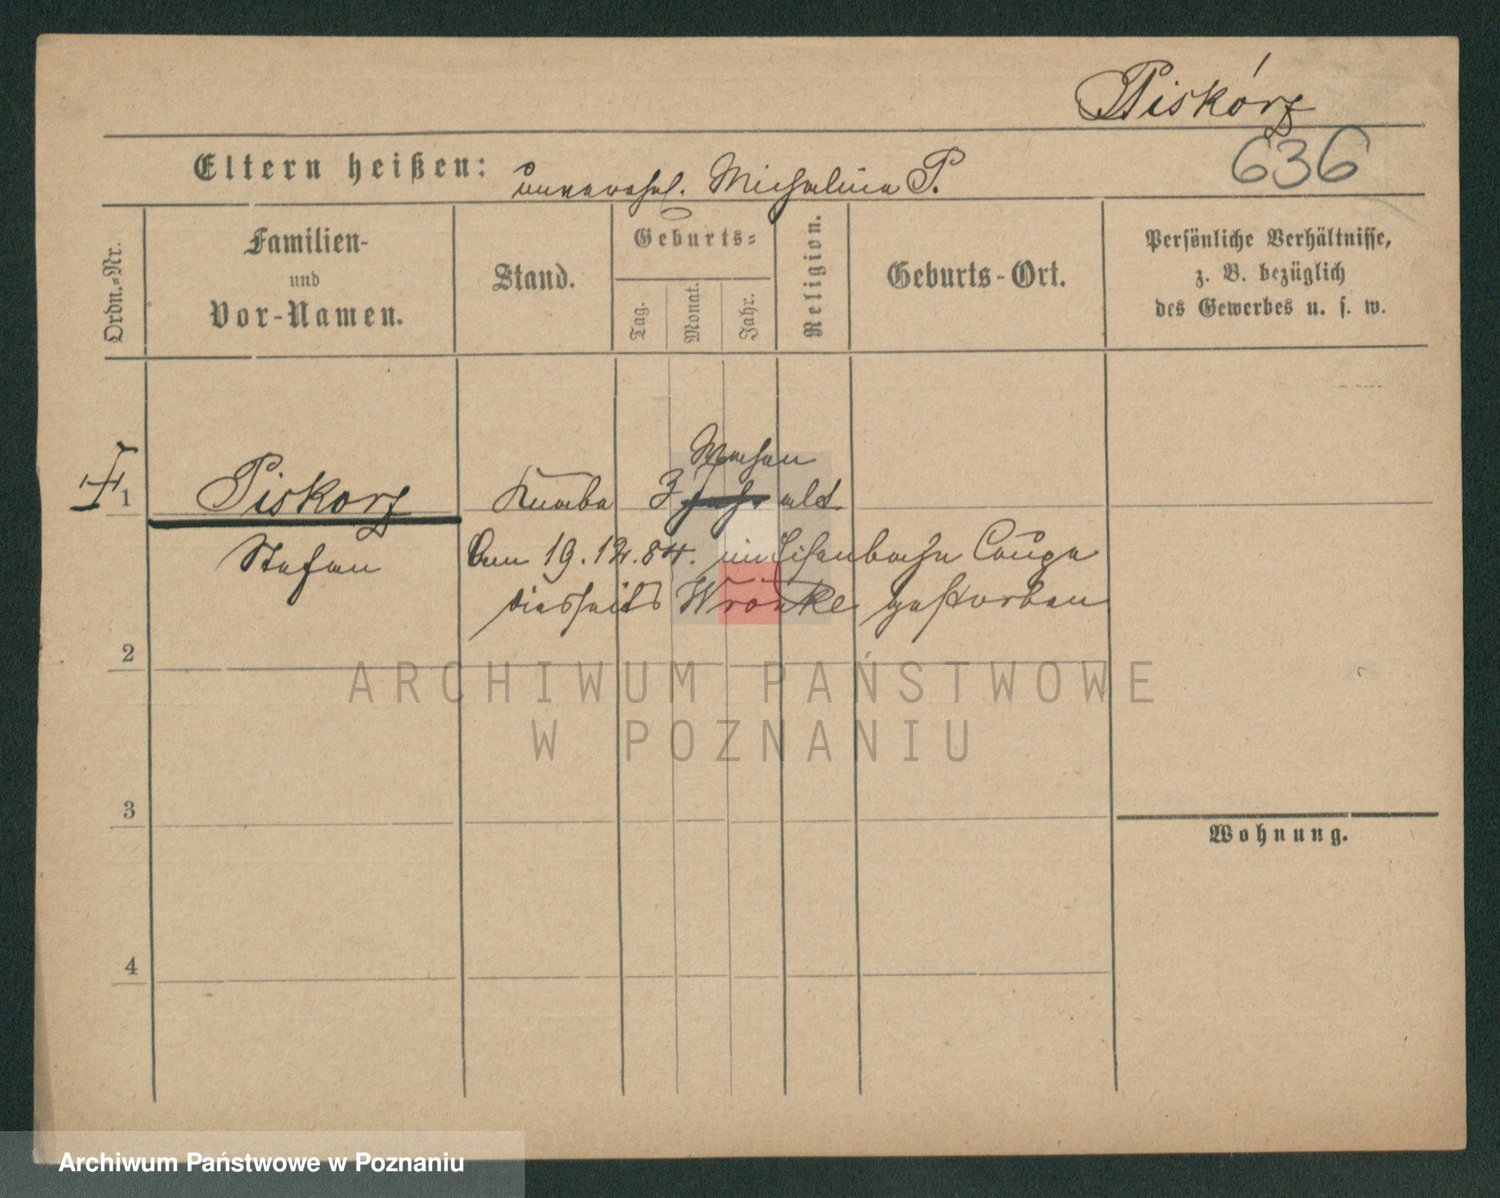 Piskórz
636
Eltern heißen: unverehel. Michalina P.
Ordn.-Nr.
Familien-
und
Vor-Namen.
Stand.
Geburts-
Tag.
Monat.
Jahr.
Religion.
Geburts-Ort.
Persönliche Verhältnisse,
z. B. bezüglich
des Gewerbes u. s. w.
Wochen
1 Piskorz Knabe 3 Jahr alt
Stefan am 19.12.84. im Eisenbahn Coupe
diesseits Wronke gestorben
2
3
Wohnung.
4
ARCHIWUM PAŃSTWOWE
W POZNANIU
Archiwum Państwowe w Poznaniu